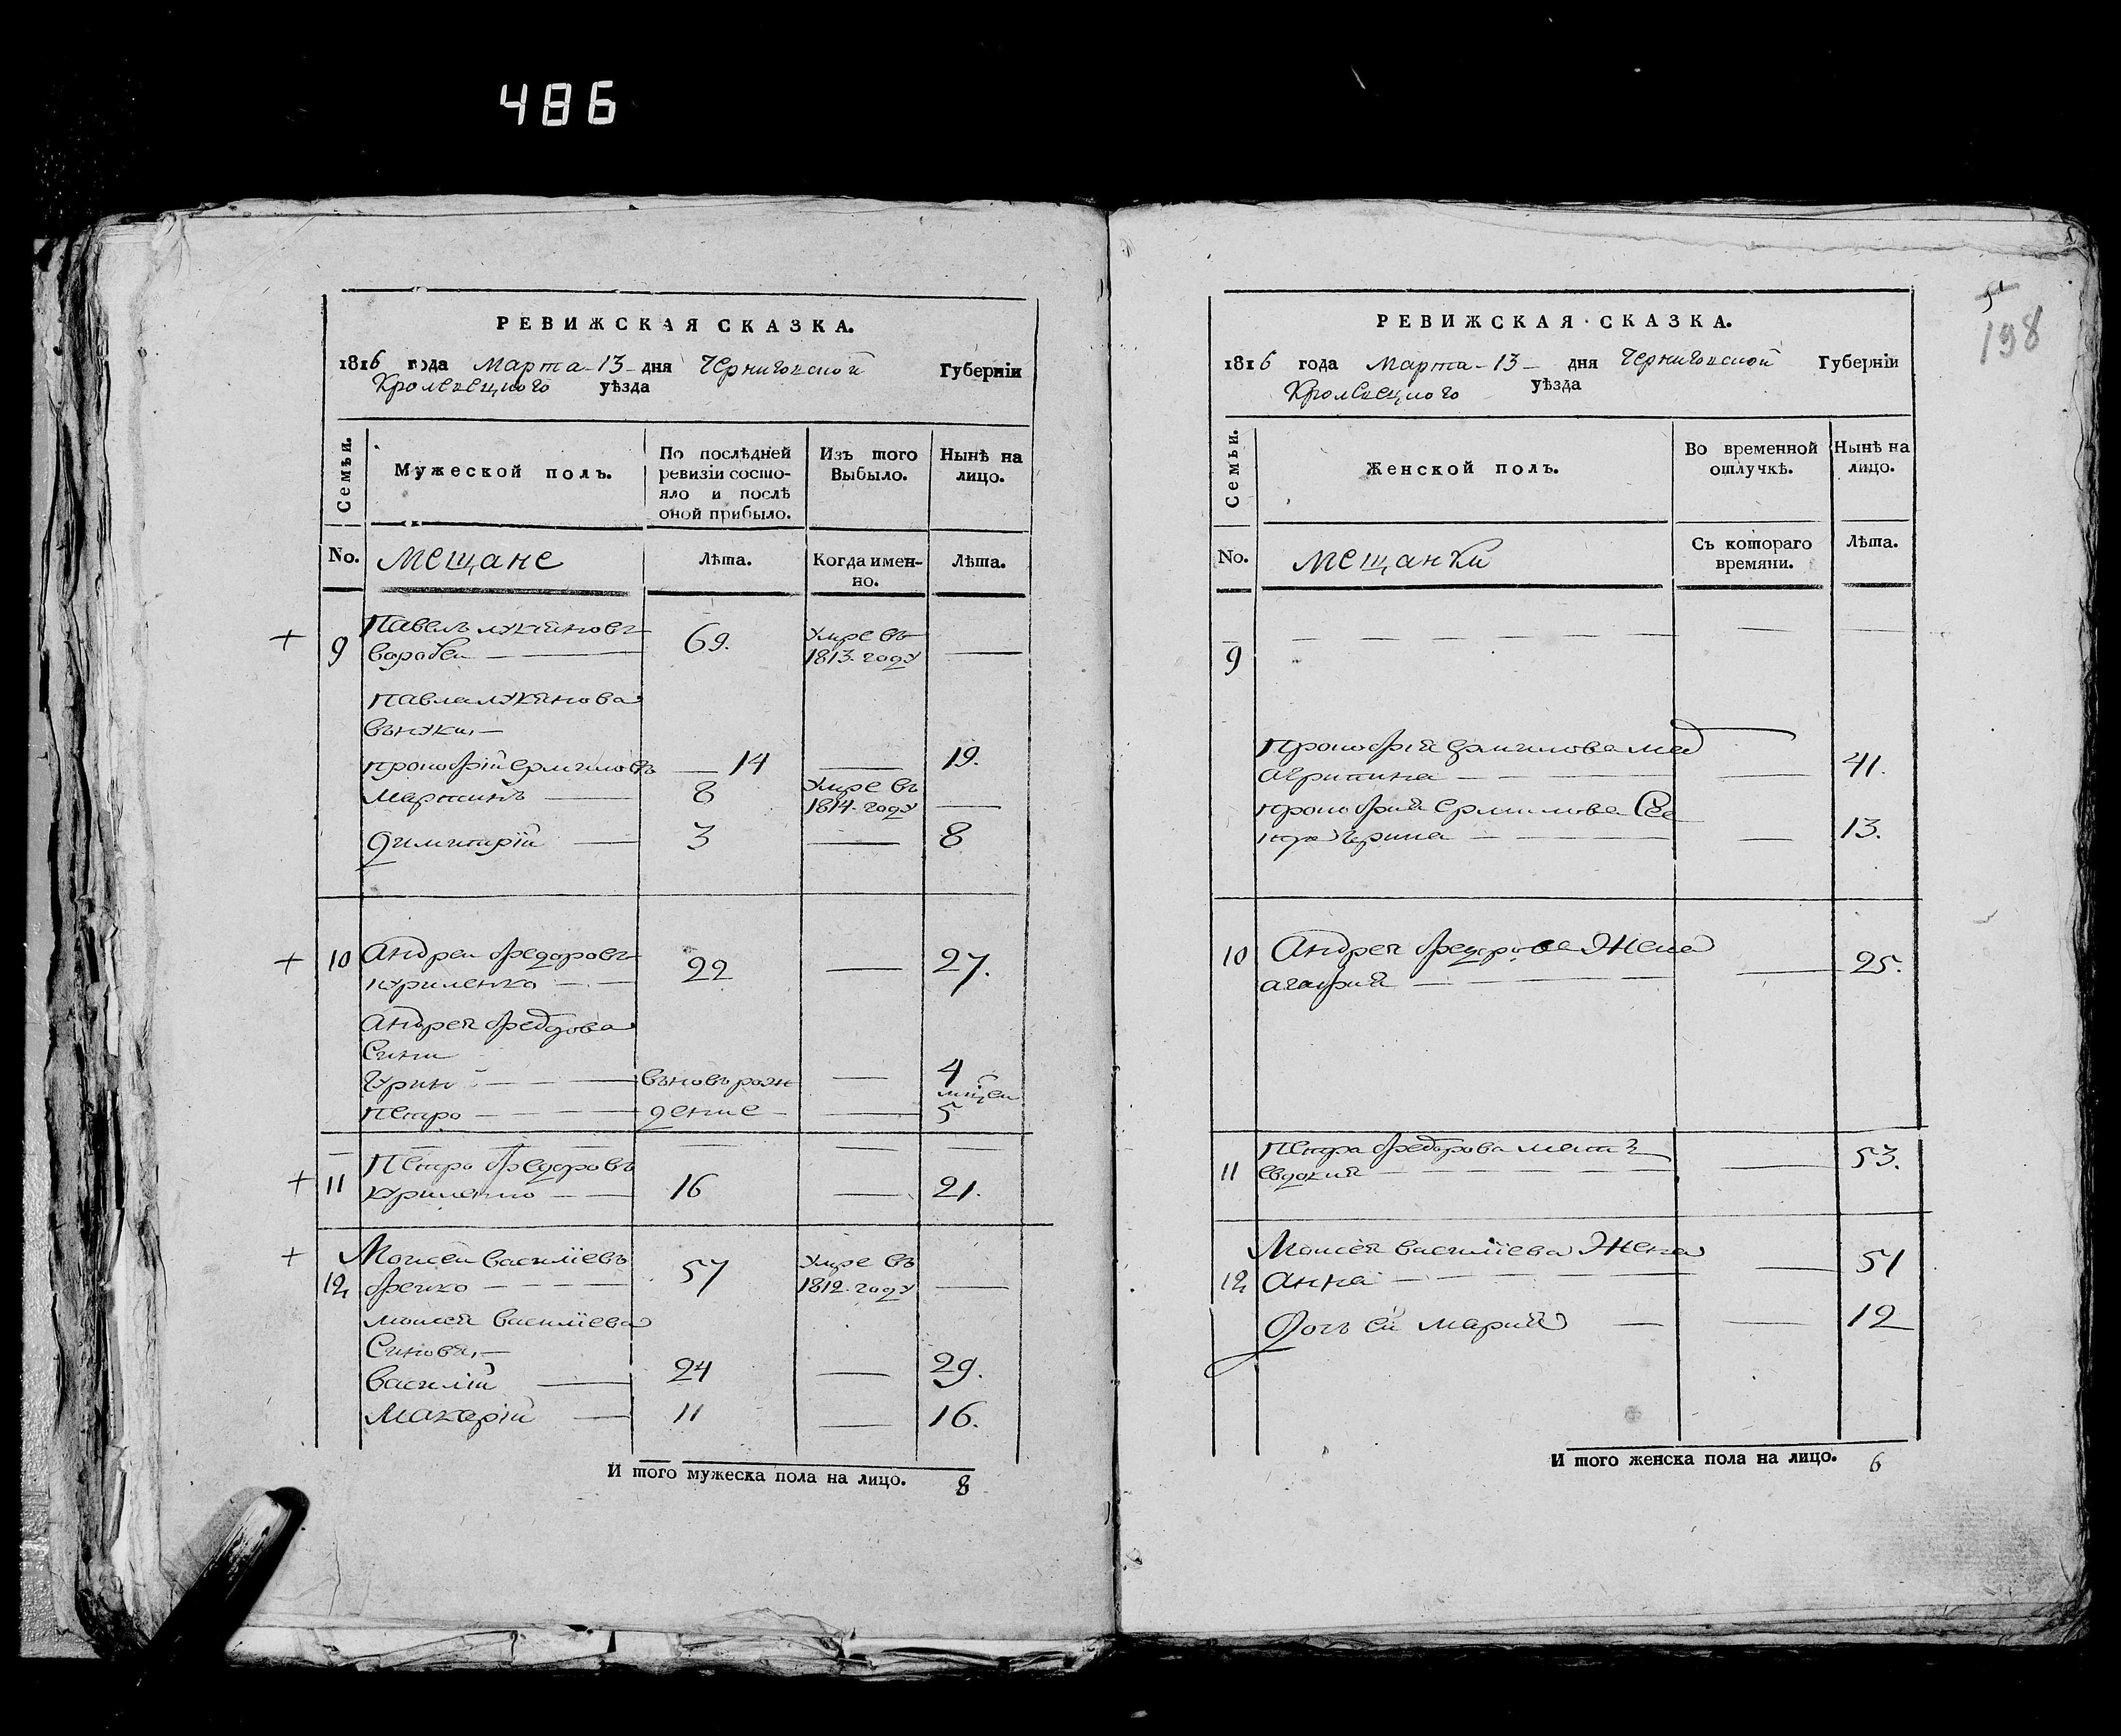 486
РЕВИЖСКАЯ СКАЗКА.
1816 года Марта 13 дня Черниговской Губернїи
Кролевецкого уѣзда
Семьи.
Мужеской полъ.
По послѣдней ревизїи состо-
яло и послѣ оной прибыло.
Изъ того Выбыло.
Нынѣ на лицо.
No. Мещане Лѣта. Когда имен-
но. Лѣта.
9 Павелъ лукяновъ 69. Умре въ
воробей 1813. году
Павла лукянова
внуки
прокофїй ермиловъ 14 19.
Мартинъ 8 Умре въ
1814. году
Димитрїй 3 8
10 Андрей федоровъ 22 27.
куриленко
Андрея федорова
Сини
Гурий вьновь рож 4
мцей
петро дение 5
11 Петро федоровъ
куриленко 16 21.
Моисей василїевъ Умре въ
12 фечко 57 1812. году
моисея василїева
Синовя,
василїй 24 29.
Макарїй 11 16.
И того мужеска пола на лицо. 8
51
198
РЕВИЖСКАЯ СКАЗКА.
1816 года Марта 13 дня Черниговской Губернїи
Кролевецкого уѣзда
Семьи.
Женской полъ.
Во временной отлучкѣ.
Нынѣ на лицо.
No. мещанки Съ котораго времяни. Лѣта.
9
прокофїя ермилова мат
агрипина 41.
прокофия ермилова Сес
13.
10 Андрея федорова Жена
агафия 25.
11 Петра федорова мать 53.
евдокия
Моисея василїева Жена
12 анна 51
Дочь ей мария 12
И того женска пола на лицо. 6